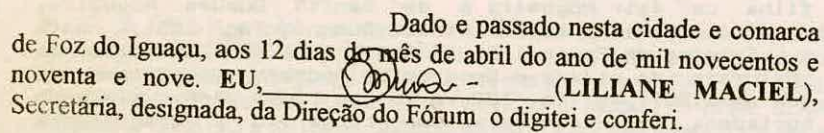 Dado e passado nesta cidade e comarca
de Foz do Iguaçu, aos 12 dias do mês de abril do ano de mil novecentos e
noventa e nove. EU,________________(LILIANE MACIEL),
Secretária, designada, da Direção do Fórum o digitei e conferi.